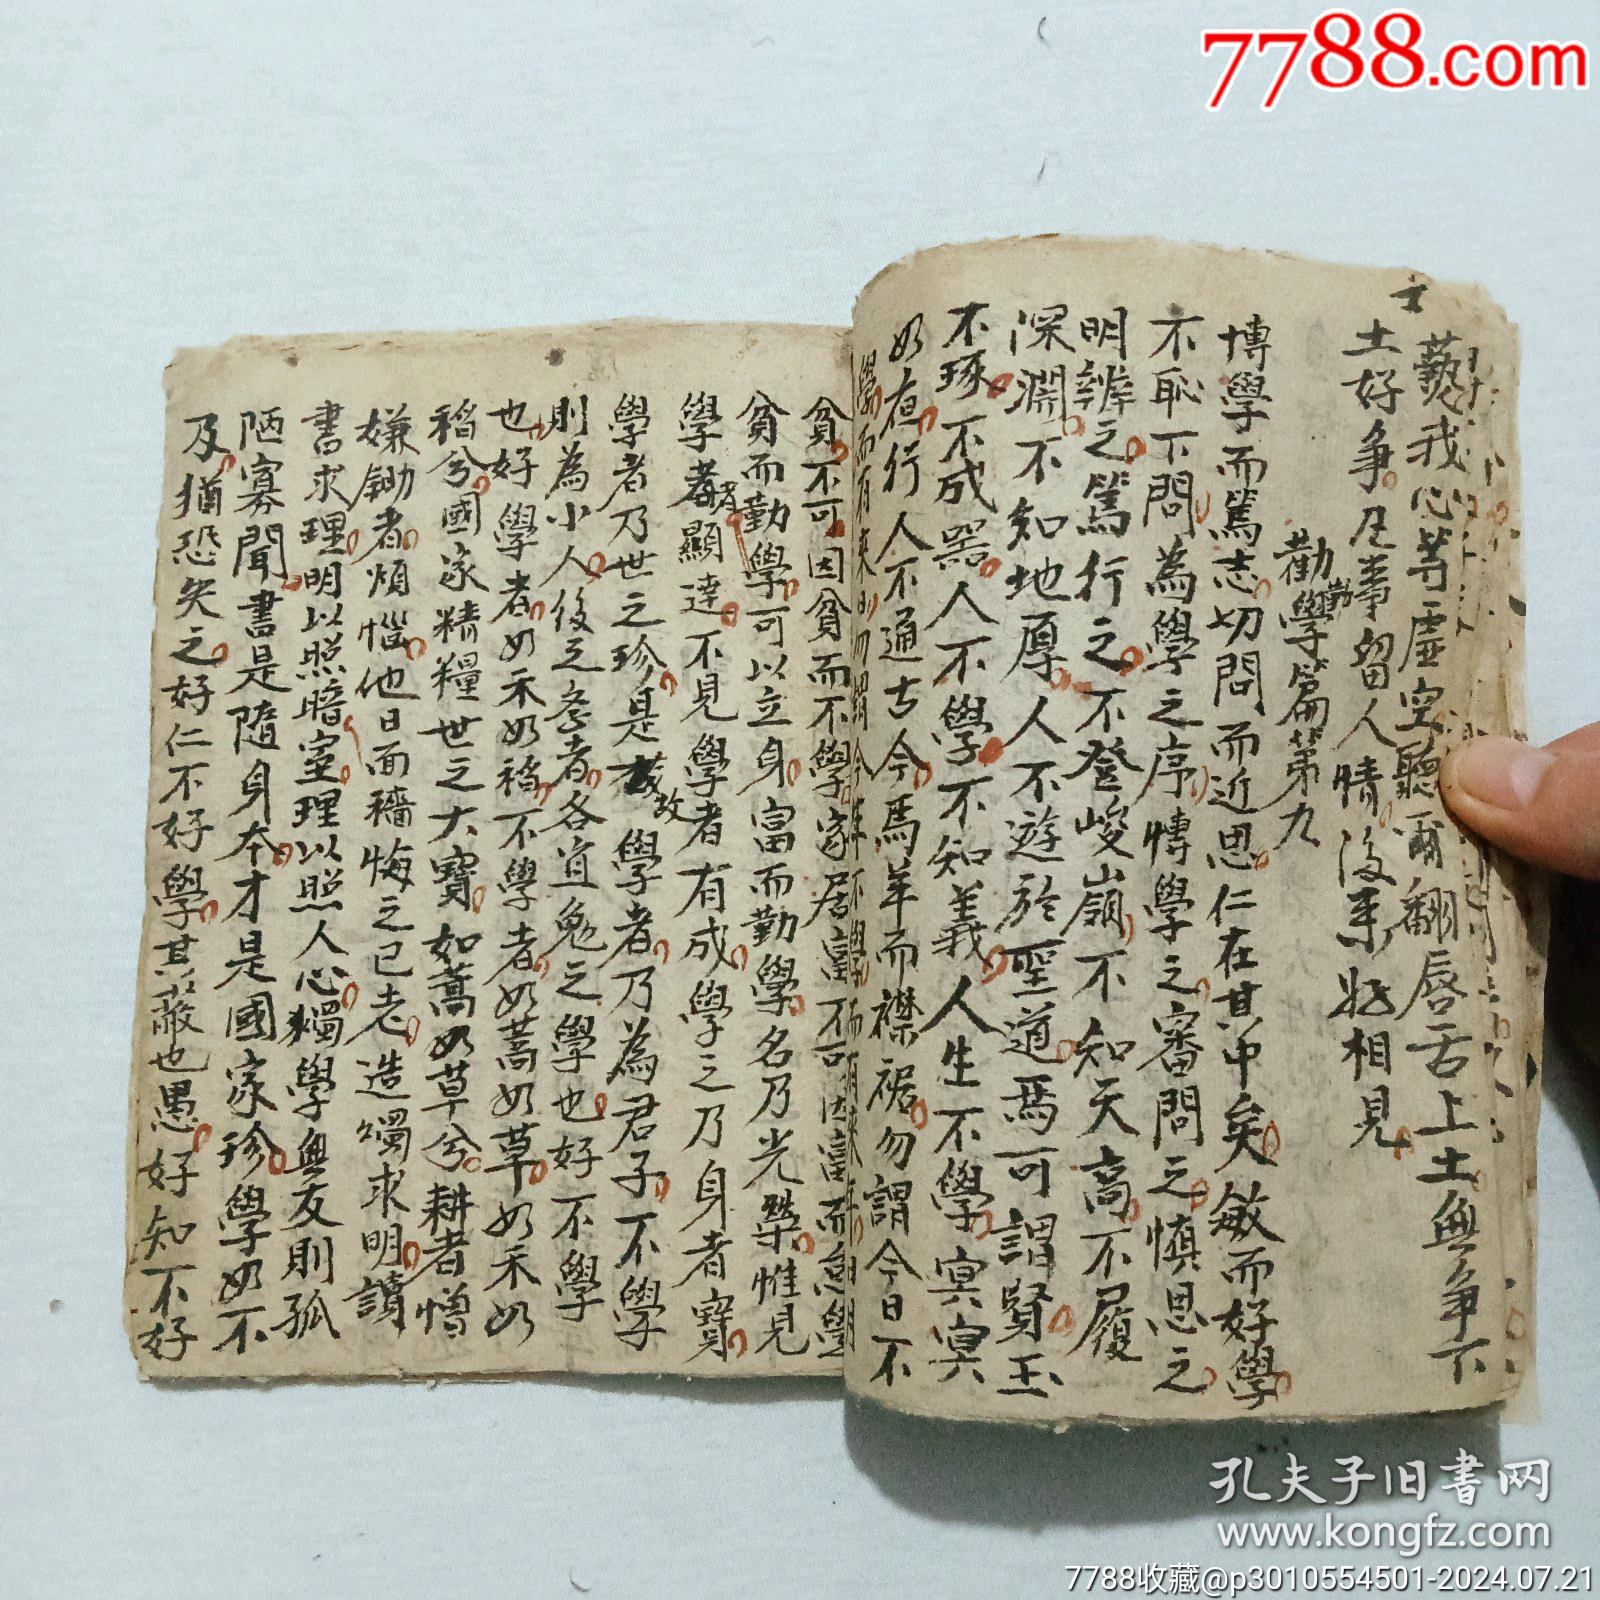 7788.com
士
藝我心等虛空聽爾翻唇舌上士無爭下
士好爭凡事留人情後來好相見
勸學篇第九
勤
博學而篤志切問而近思仁在其中矣敏而好學
不恥下問為學之序博學之審問之慎思之
明辨之篤行之不登峻嶺不知天高不履
深澗不知地厚人不遊於聖道焉可謂賢玉
不琢不成器人不學不知義人生不學冥冥
如夜行人不通古今馬羊而襟裾勿謂今日不
學而有來
貧不可因貧而不學家居富不可因富而怠學
貧而勤學可以立身富而勤學名乃光榮惟見
學者顯達不見學者有成學之乃身者寶
學者乃世之珍是故學者乃為君子不學
則為小人後之學者各宜勉之學也好不學
也好學者如禾如稻不學者如蒿如草如禾如
稻兮國家精糧世之大寶如蒿如草兮耕者憎
嫌鋤者煩惱他日面墻悔之已老造燭求明讀
書求理明以照暗室理以照人心獨學無友則孤
陋寡聞書是隨身本才是國家珍學如不
及猶恐失之好仁不好學其蔽也愚好知不好
孔夫子旧書网
www.kongfz.com
7788收藏@p3010554501-2024.07.21